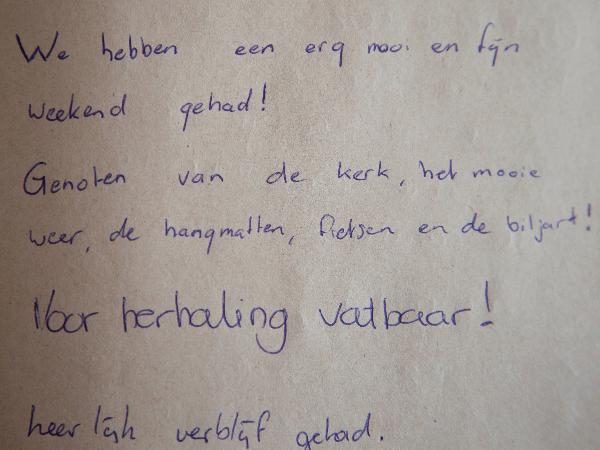 We hebben een erg mooi en fijn
weekend gehad!
Genoten van de kerk, het mooie
weer, de hangmatten, fietsen en de biljart!
Voor herhaling vatbaar!
heerlijk verblijf gehad.